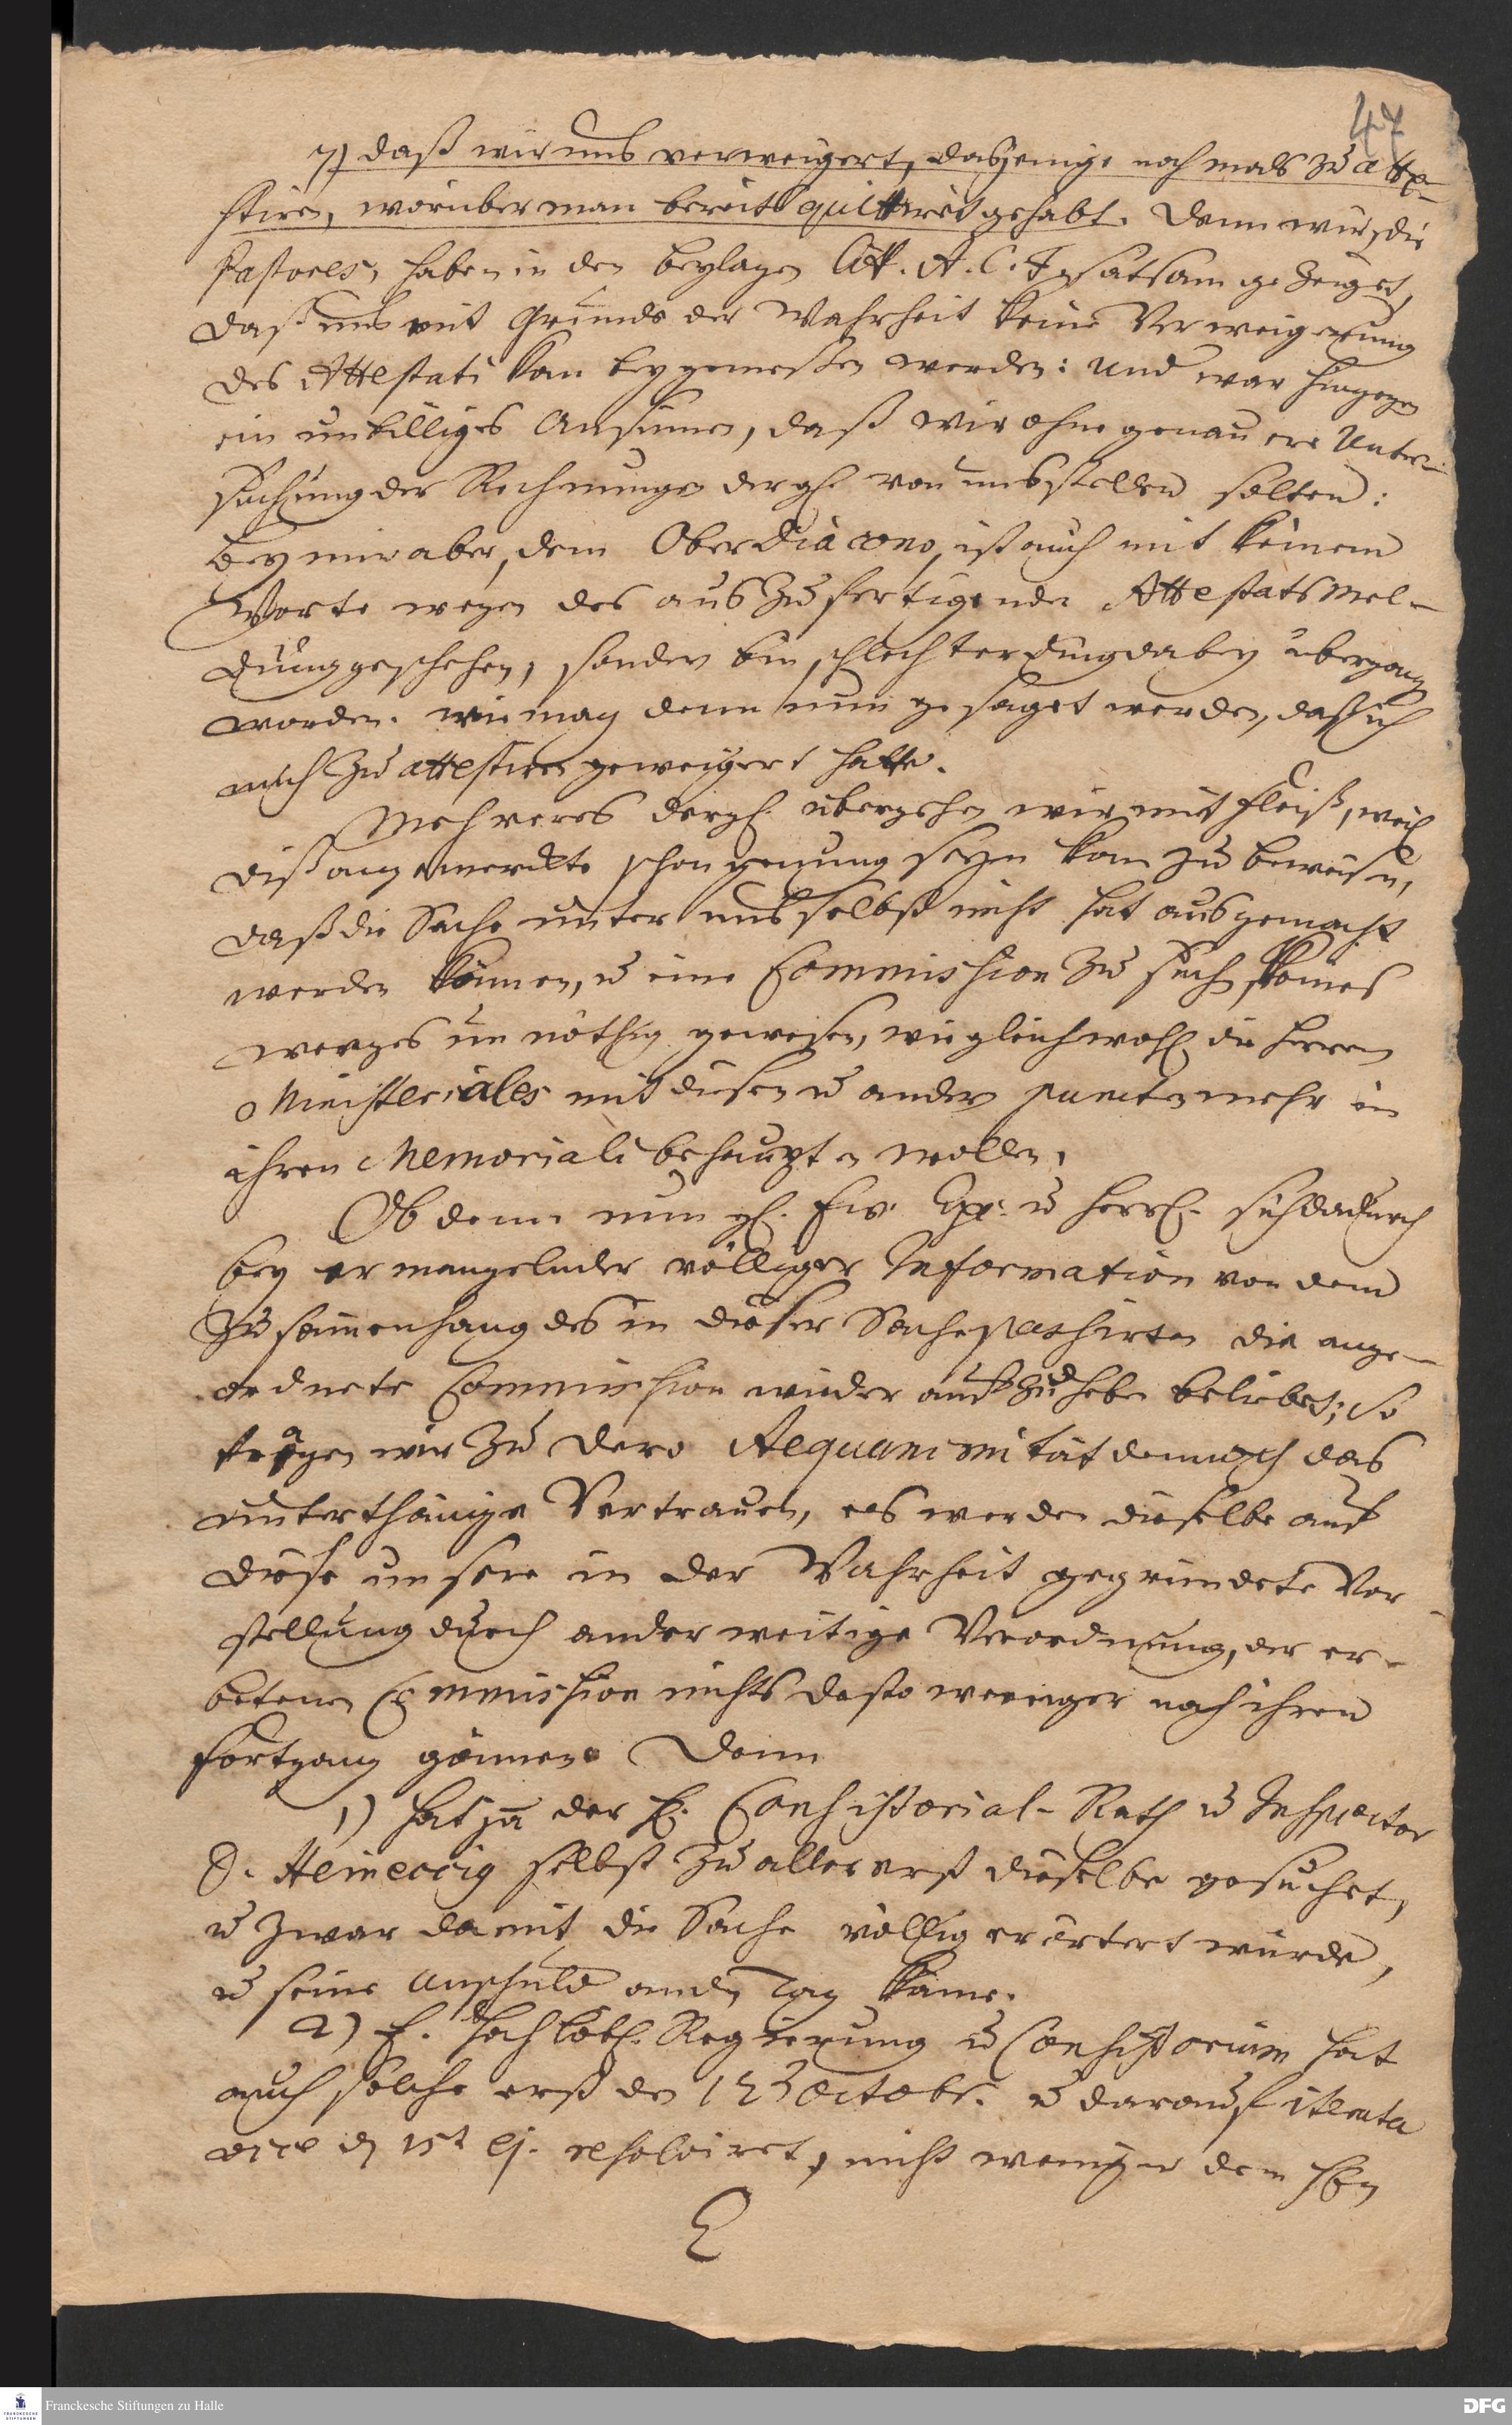 47
7) daß wir uns verweigert, dasjenige nochmals zu atte-
stiren, worüber man bereits quittiret gehabt. Denn wir, die
Pastores, haben in den Beylagen Litt. A. C. F. sattsam gezeiget,
daß uns mit Grunde der Wahrheit keine Verweigerung
des Attestati kan beygemessen werden: und war hingegen
ein unbilliges Ansinnen, daß wir ohne genauere Unter-
suchung der Rechnungen dergl. von uns stellen solten:
bey mir aber, dem Ober Diacono, ist auch mit keinem
Worte wegen des auszufertigenden Attestats Mel-
dung geschehen, sondern bin schlechterding dabey übergang
worden. wie mag denn nun gesaget werden, daß ich
mich zu attestiren geweigert hätte.
Mehreres dergl. übergehen wir mit Fleiß, weil
diß angemerckte schon genung seyn kan zu beweisen,
daß die Sache unter uns selbst nicht hat ausgemacht
werden können, u eine Commission zu suchen keines
weges unnöthig gewesen, wie gleichwohl die Herren
Ministeriales mit diesen u andern puncten mehr in
ihren Memoriali behaupten wollen.
Ob denn nun gl. Ew. Exc. u Herrl. sich dadurch
bey ermangelnder völliger Information von dem
Zusammenhang des in dieser Sache passirten die ange-
ordnete Commission wieder aufzuheben beliebet; so
tragen wir zu Dero Aequanimität dennoch das
unterthänige Vertrauen, es werden dieselbe auf
diese unsere in der Wahrheit gegründete Vor-
stellung durch anderweitige Verordnung, der er-
betenen Commission nichts desto weniger noch ihren
Fortgang gönnen. Denn
1) hat ja der H. Consistorial-Rath u Inspector
D. Heineccig selbst zu allererst dieselbe gesuchet,
u zwar damit die Sache völlig erörtert würde,
u seine Unschuld an den Tag käme.
2) E. Hochlöbl. Regierung u Consistorium hat
auch solche erst den 12 Octobr. u darauf iterata
vice den 15t ej. resolviret, nicht weniger dem Hln
Franckesche Stiftungen zu Halle
DFG